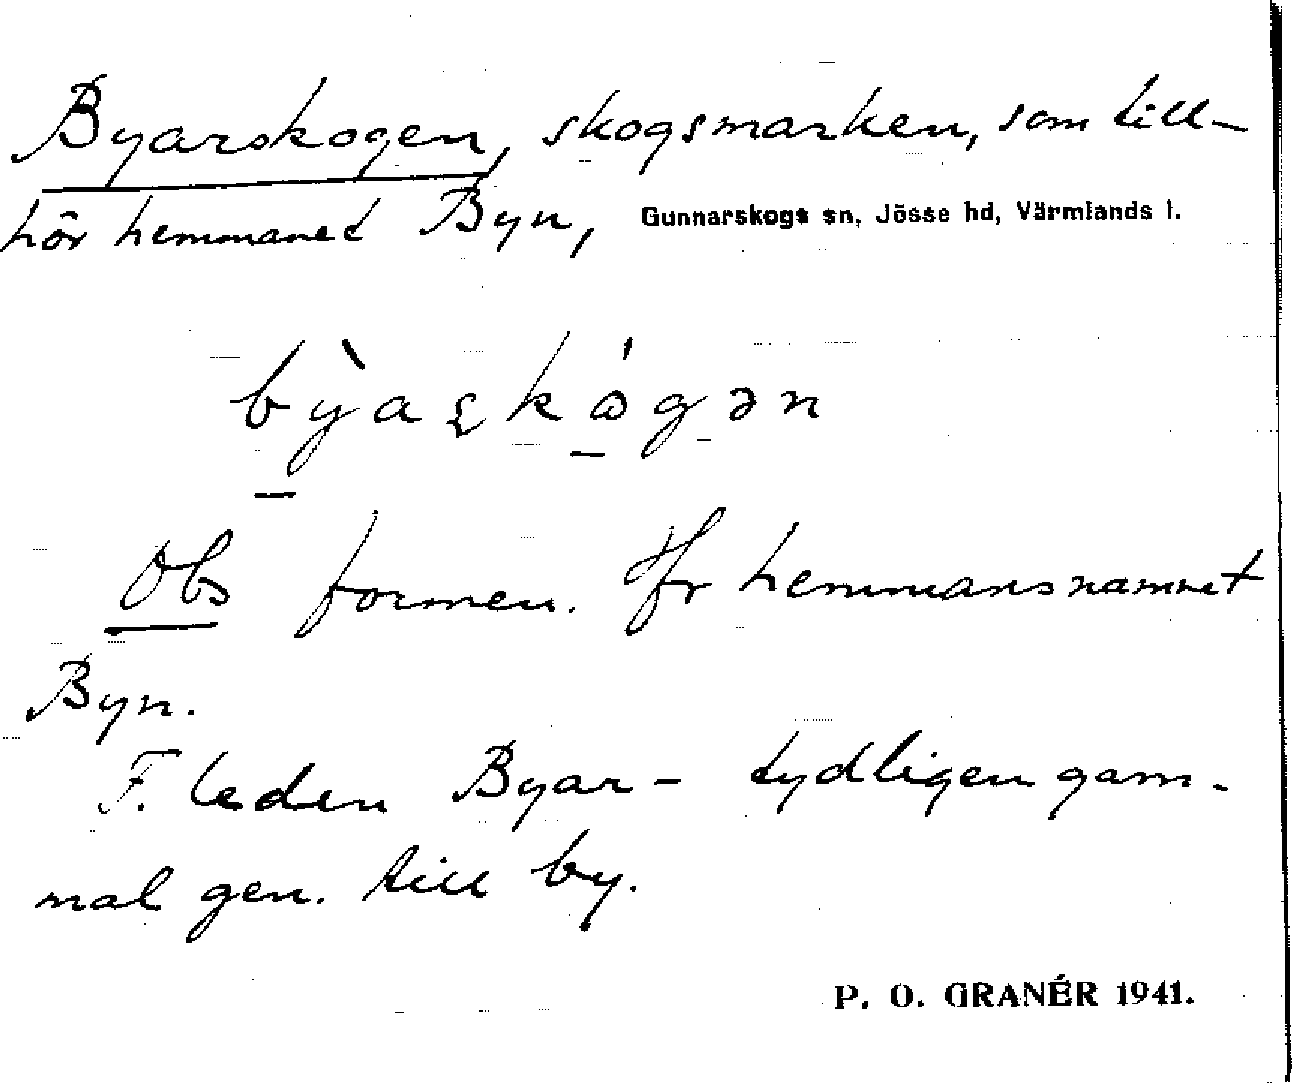 Byarskogen, skogsmarken, som till-
hör hemmanet Byn, Gunnarskogs sn, Jösse hd, Värmlands l.
Obs formen. Jfr hemmansnamnet
Byn.
F. leden Byar- tydligen gam-
mal gen. till by.
P. O. GRANÉR 1941.